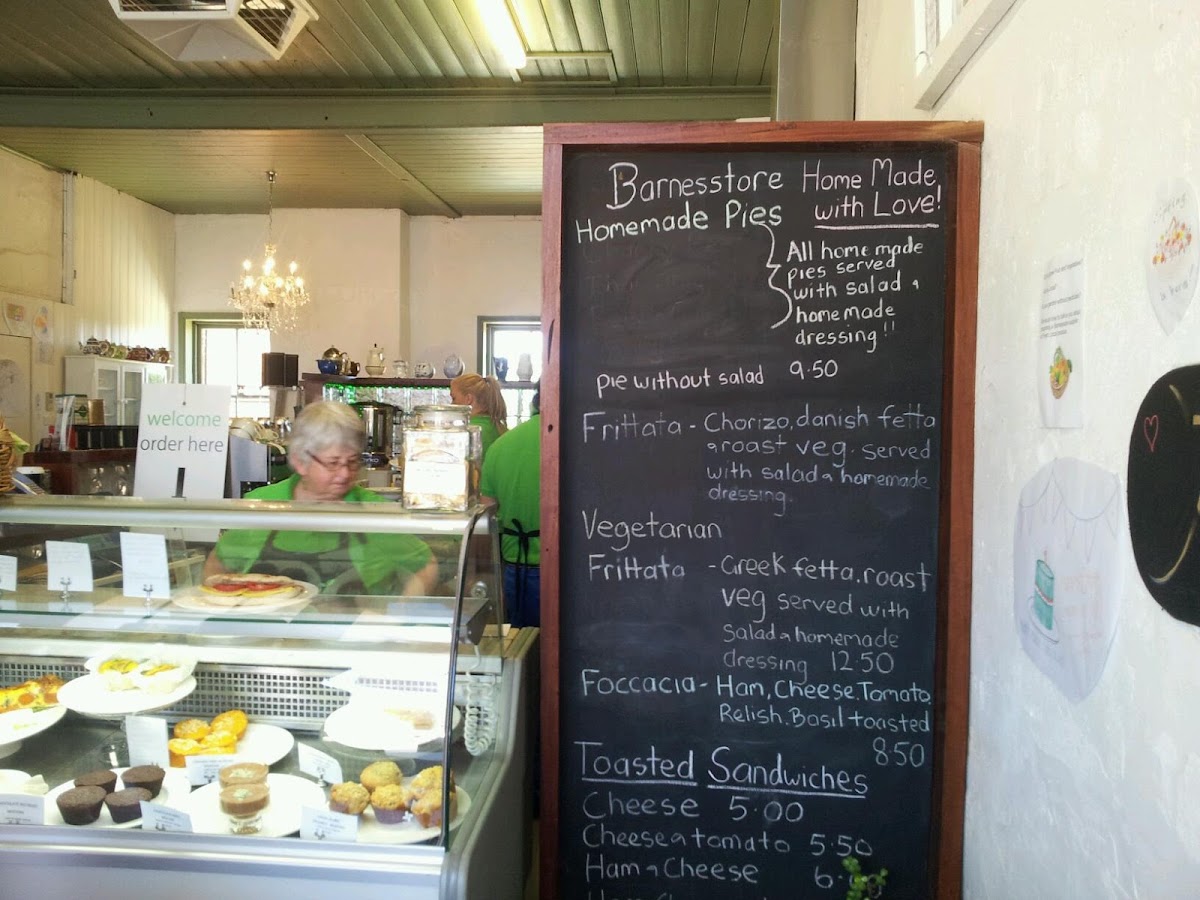 Barnesstore Home Made
with Love!
Homemade Pies
All home made
pies served
with salad &
home made
dressing!!
Pie without salad 9.50
Frittata - Chorizo, danish fetta
& roast veg. served
with salad & homemade
dressing.
Vegetarian
Frittata - Greek fetta. roast
veg served with
Salad & homemade
dressing 12.50
Foccacia - Ham, Cheese. Tomato.
Relish. Basil toasted
8.50
Toasted Sandwiches
Cheese 5.00
Cheese & tomato 5.50
Ham & Cheese 6.
welcome
order here